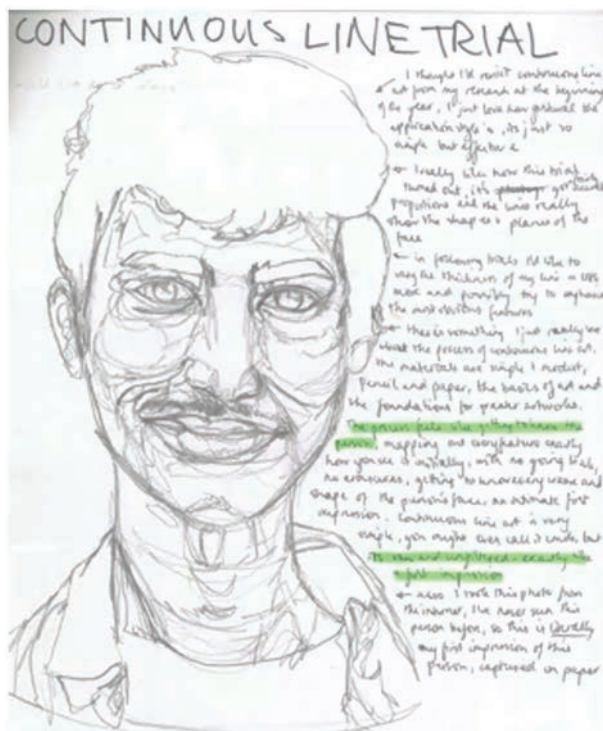 CONTINUOUS LINE TRIAL
I thought I'd revisit continuous line
art from my research at the beginning
of the year, I just love how gestural the
application style is, its just so
simple but effective
I really like how this trial
turned out, it's got
proportions and the lines really
show the shapes & planes of the
face
in following trials I'd like to
vary the thickness of my line
and possibly try to
the most obvious features
there is something I just really love
about the process of continuous line art.
the materials are simple & modest,
pencil and paper, the basics of art and
the foundations for greater artworks.
The process feels like getting to know the
person, mapping out every feature exactly
how you see it initially, with no going back,
no erasures, getting to know every crease and
shape of the person's face, an intimate first
impression. Continuous line art is very
simple, you might even call it crude, but
its raw and unfiltered, exactly like
a first impression
also I took this photo from
the internet, I've never seen this
person before, so this is literally
my first impression of this
person, captured on paper